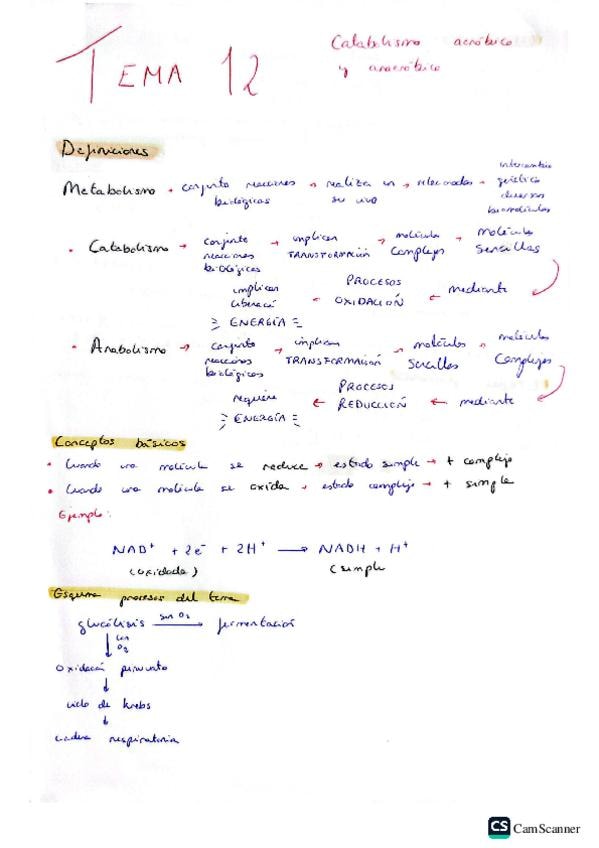 TEMA 12
Catabolismo aeróbico
y anaeróbico
Definiciones
Metabolismo → conjunto reacciones biológicas → realiza en su vivo → relacionadas → intercambio diversos biomoléculas
• Catabolismo → conjunto reacciones biológicas → implican TRANSFORMACIÓN → molécula Complejas → molécula Sencillas
mediante ← PROCESOS OXIDACIÓN ← implican liberació
ENERGÍA
• Anabolismo → conjunto reacciones biológicas → implican TRANSFORMACIÓN → moléculas Sencillas → moléculas Complejas
mediante ← PROCESOS REDUCCIÓN ← requiere
ENERGÍA
Conceptos básicos
• Cuando una molécula se reduce → estado simple → + complejo
• Cuando una molécula se oxida → estado complejo → + simple
Ejemplo:
NAD+ + 2e- + 2H+ → NADH + H+
(oxidada) (simple
Esquema procesos del tema
glucólisis sin O2 → fermentación
↓ con O2
Oxidació piruvato
↓
ciclo de krebs
↓
cadena respiratoria
CS CamScanner